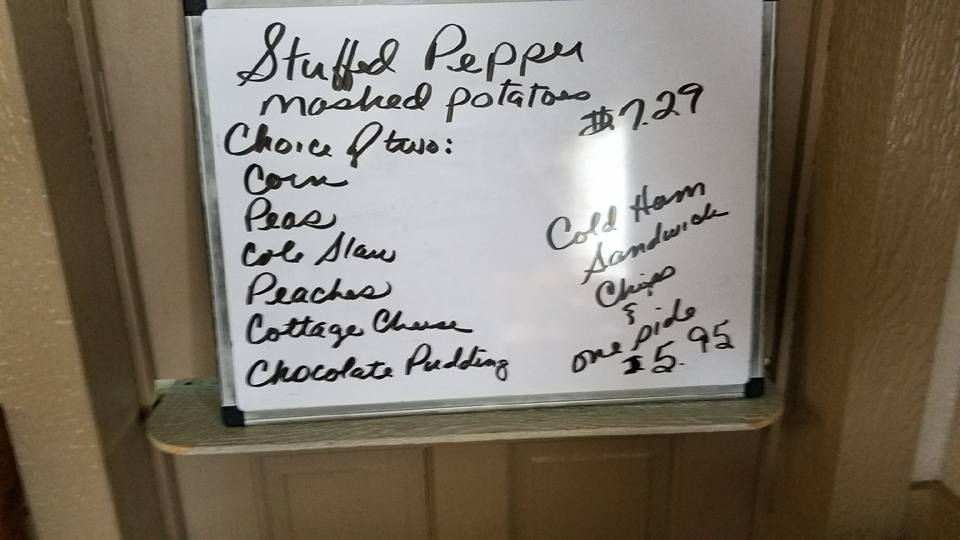 Stuffed Pepper
mashed potatoes
$7.29
Choice of two:
Corn
Peas
Cole Slaw
Peaches
Cottage Cheese
Chocolate Pudding
Cold Ham
Sandwich
Chips
&
one side
$5.95